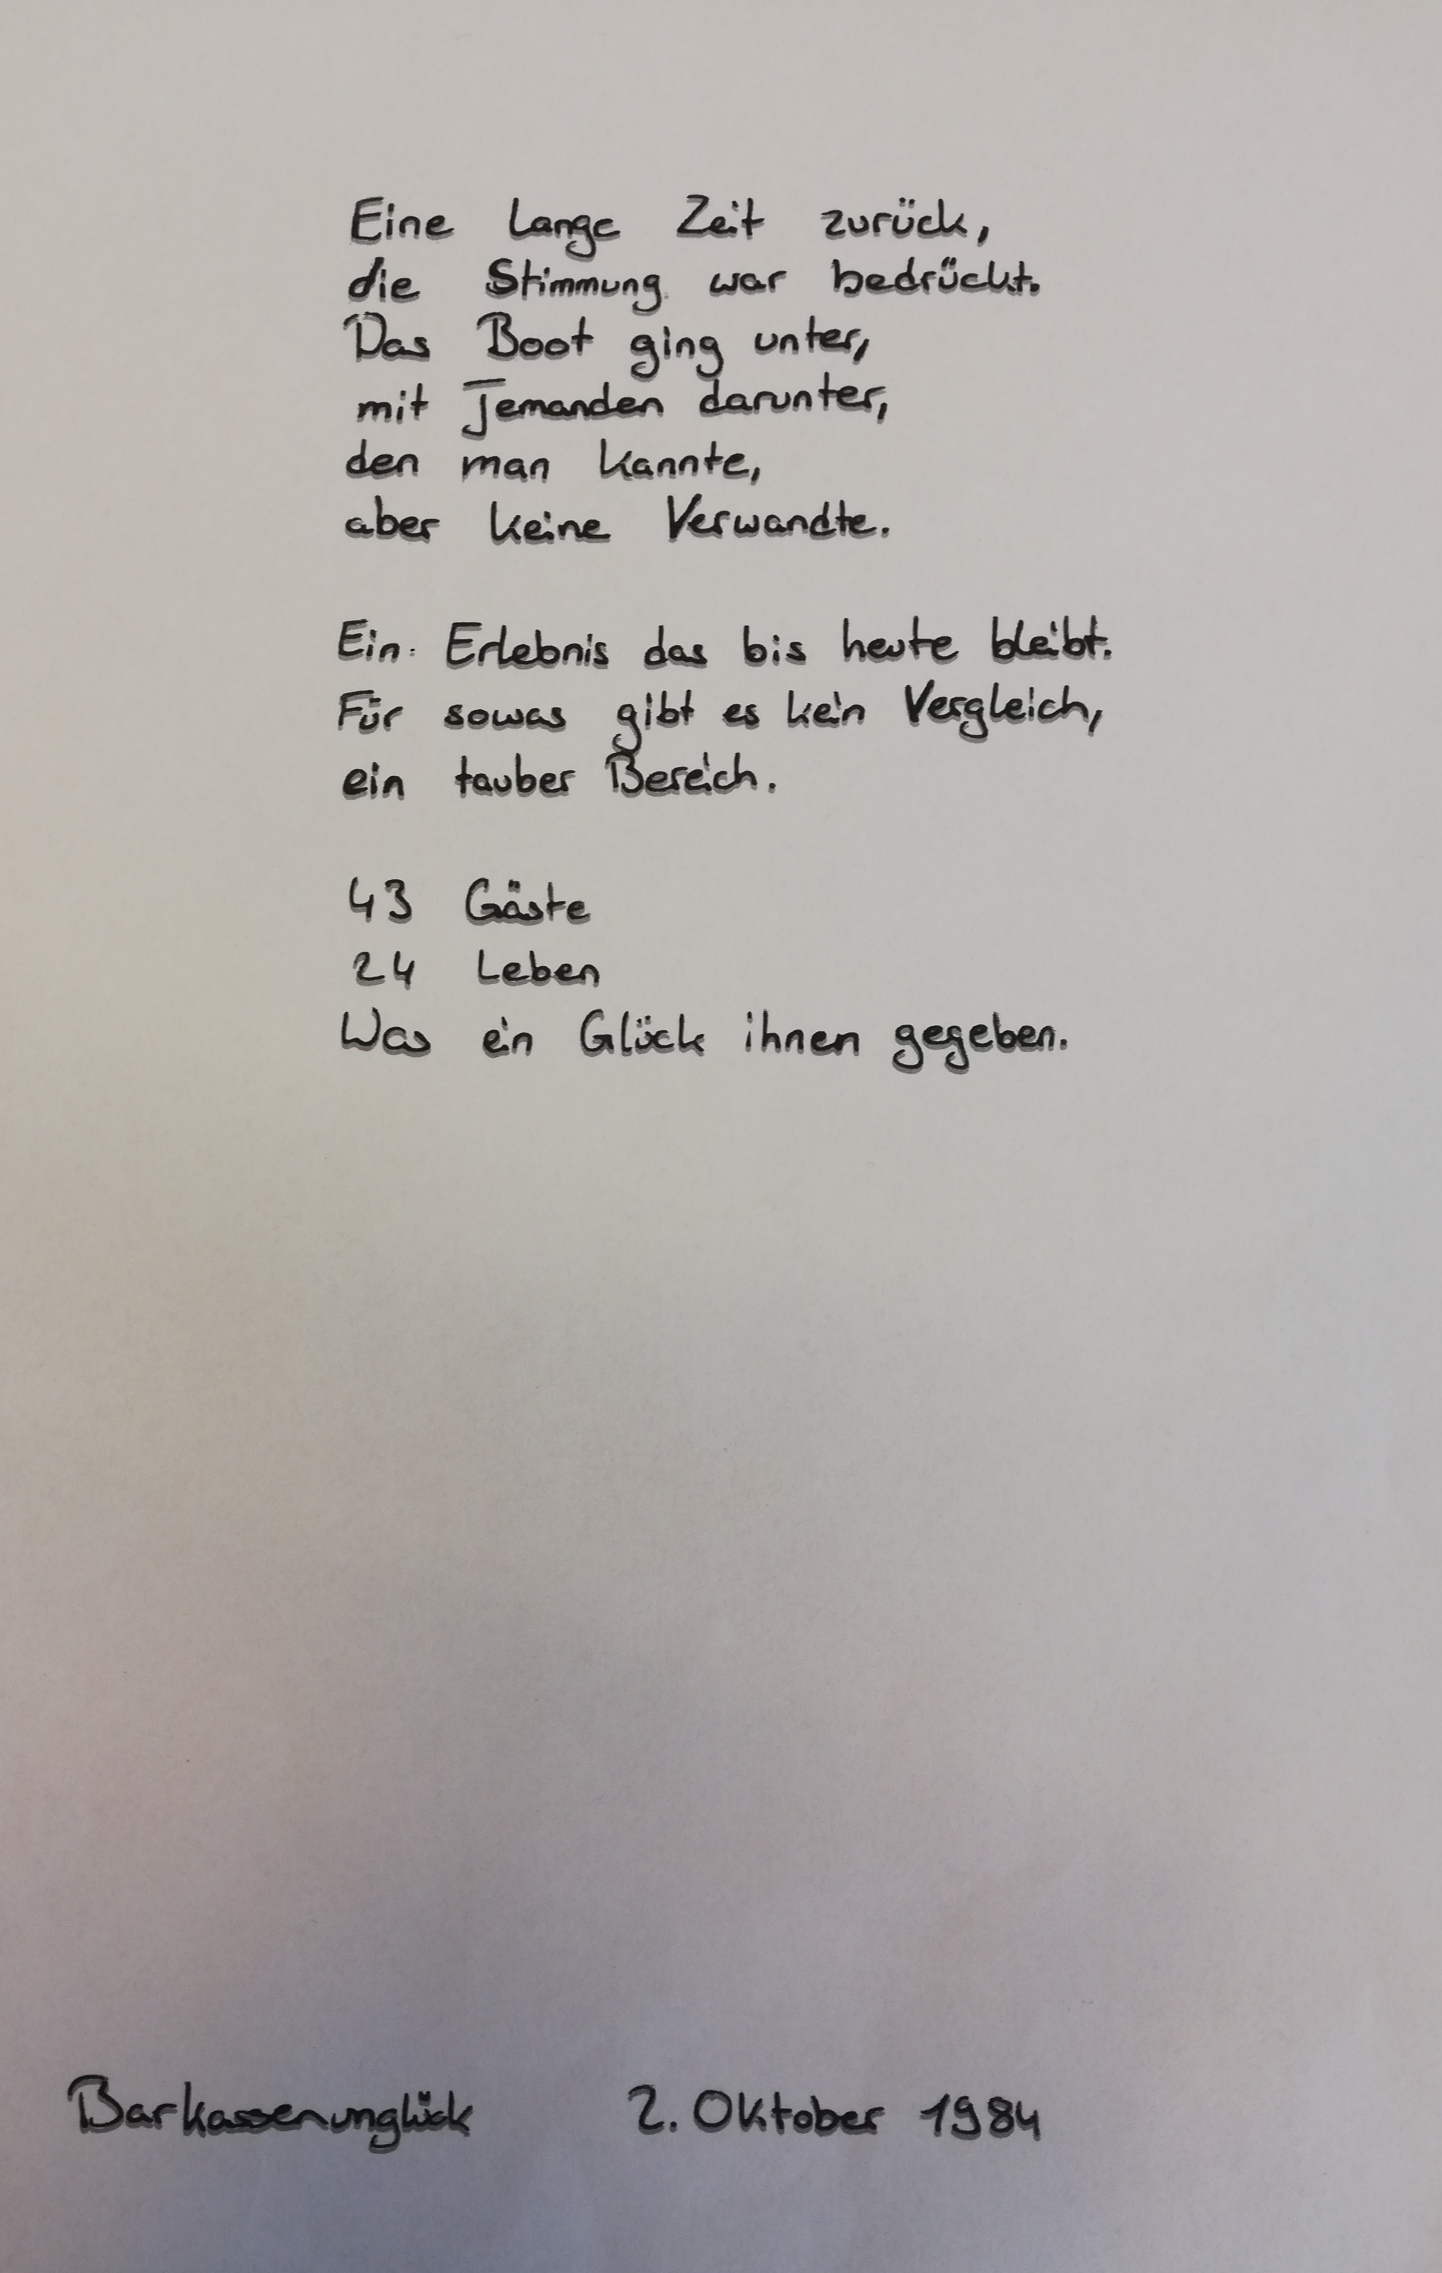 Eine lange Zeit zurück,
die Stimmung war bedrückt.
Das Boot ging unter,
mit Jemanden darunter,
den man kannte,
aber keine Verwandte.
Ein Erlebnis das bis heute bleibt.
Für sowas gibt es kein Vergleich,
ein tauber Bereich.
43 Gäste
24 Leben
Was ein Glück ihnen gegeben.
Barkassenunglück 2. Oktober 1984